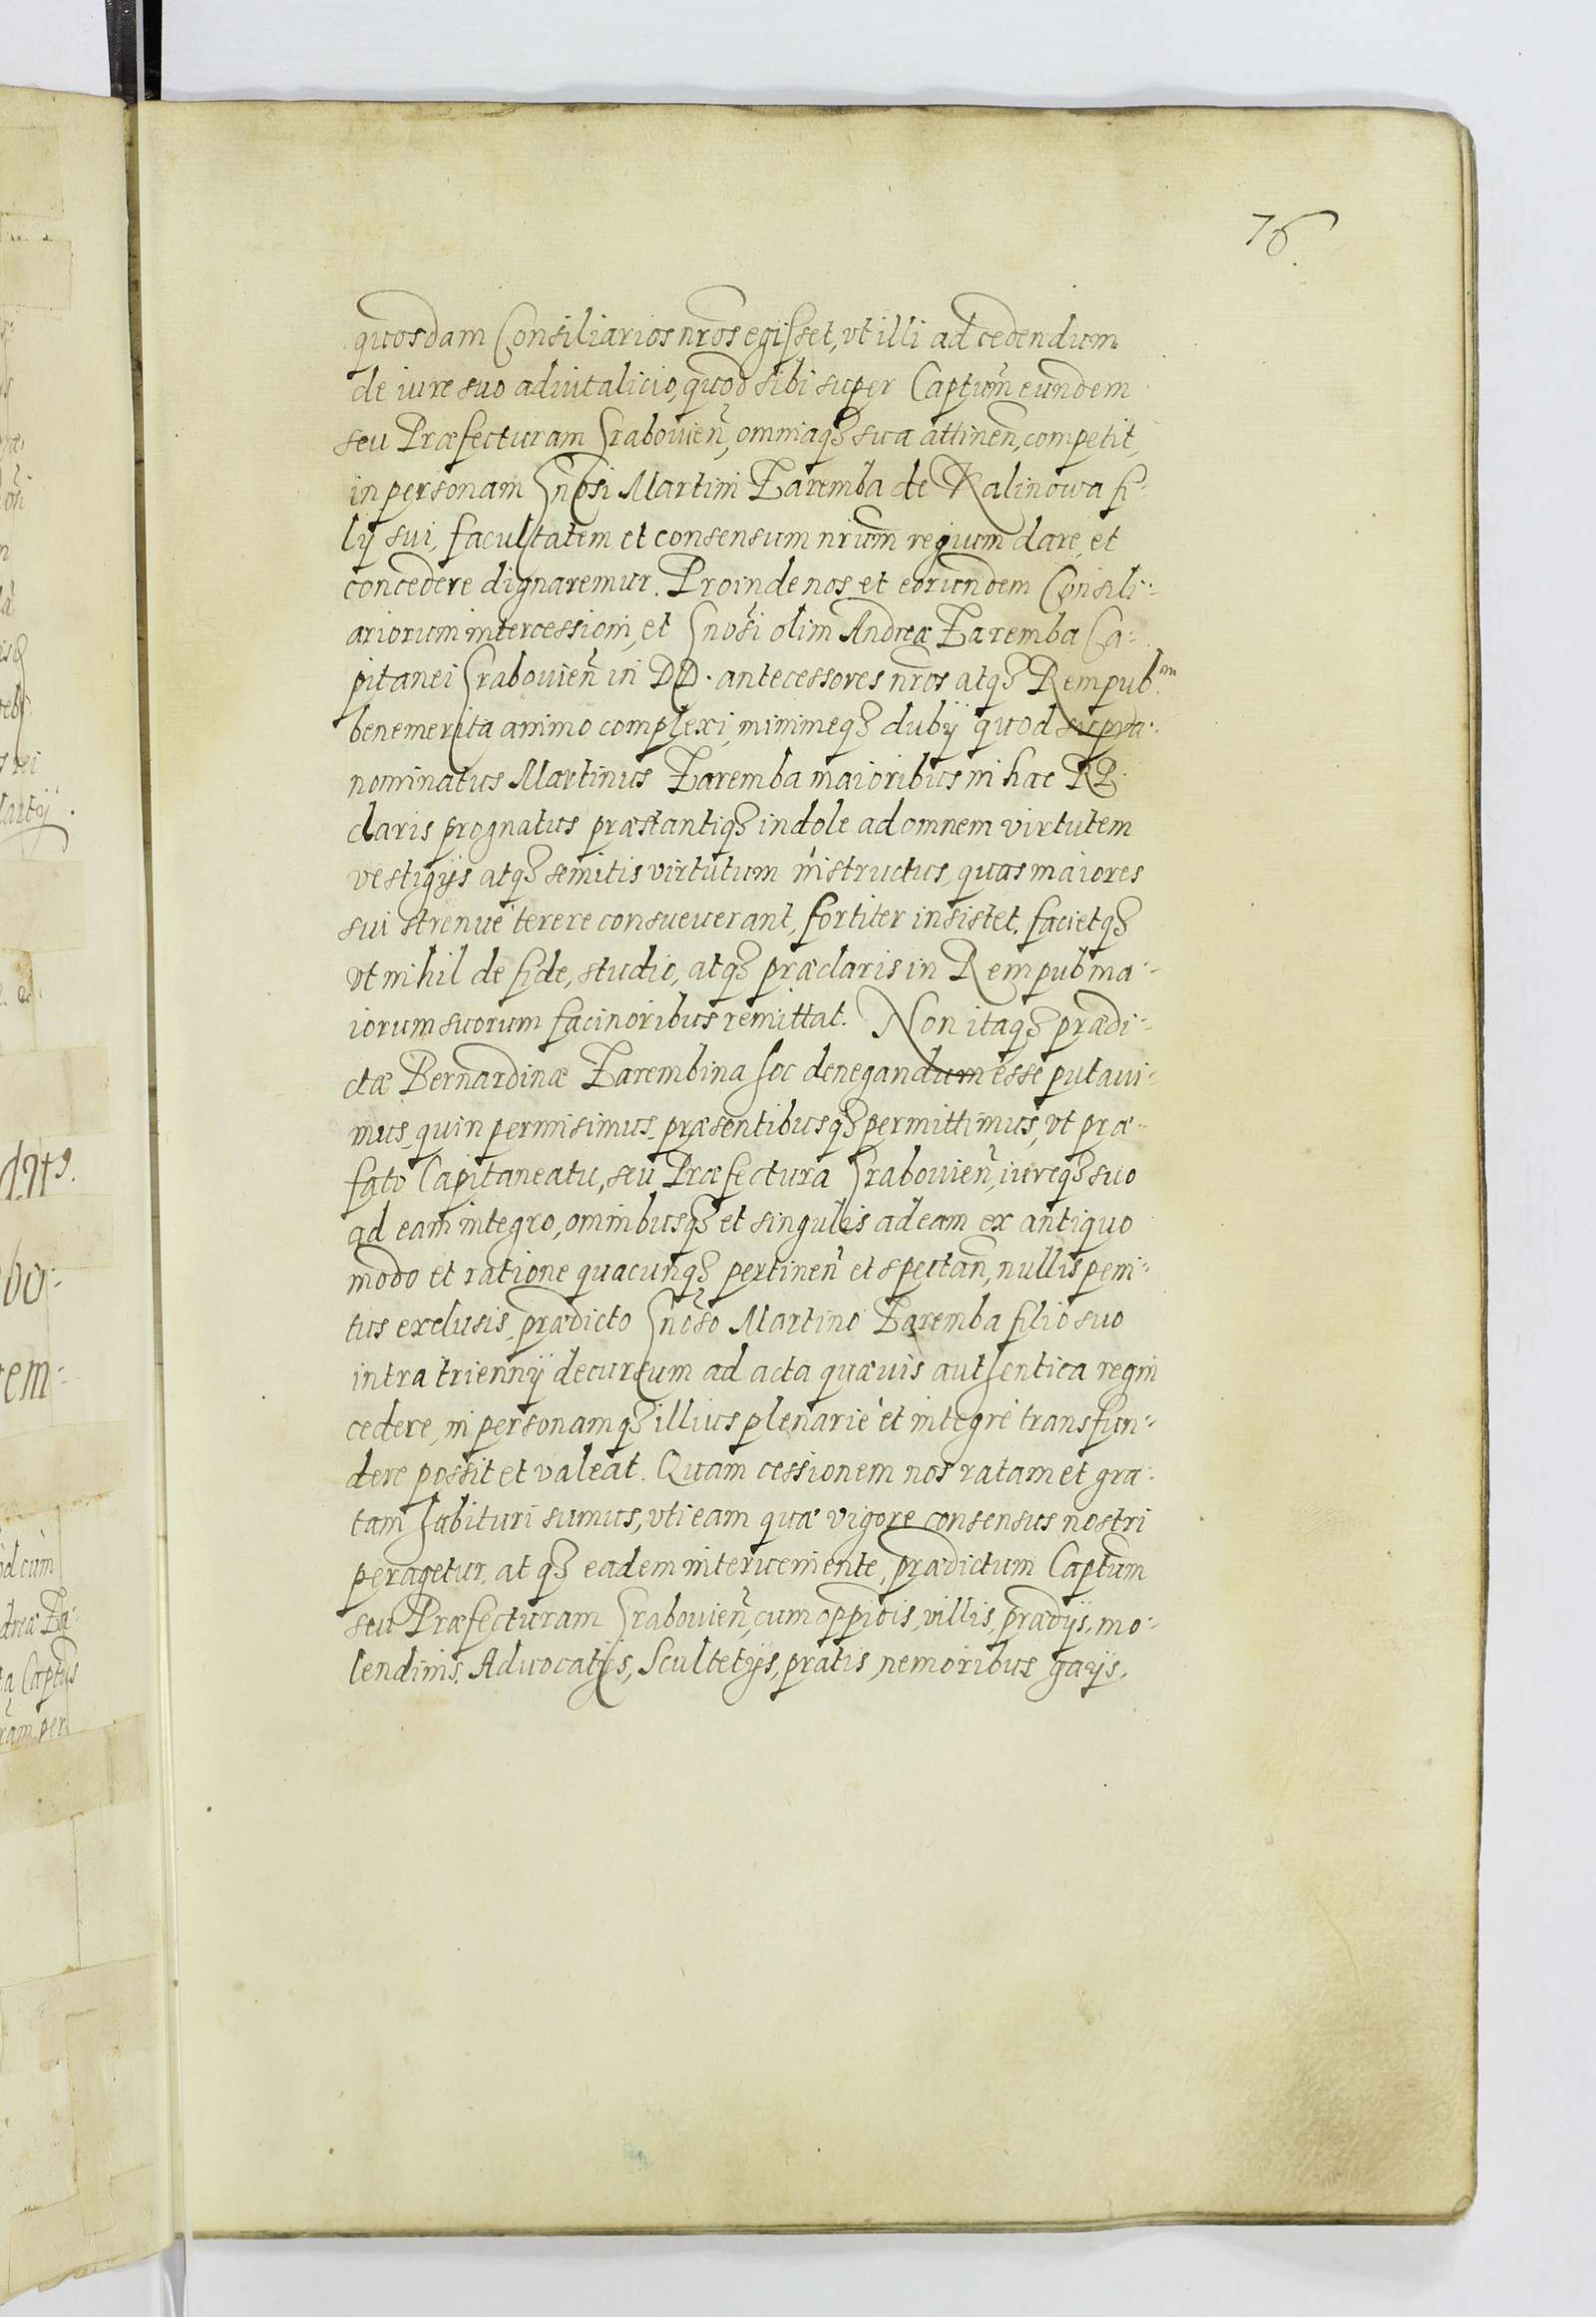 76.
quosdam Consiliarios nr̃os egisset, vt illi ad cedendum
de iure suo aduitalicio, quod sibi super Captum̃ eundem
seu Præfecturam Grabouien̄, omniaqȝ sua attinen̄, competit,
in personam Gn̄osi Martini Zaremba de Kalinowa fi-
lij sui, facultatem et consensum nr̄um regium dare, et
concedere dignaremur. Proinde nos et eorundem Consili-
ariorum intercessioni, et Gn̄osi olim Andreæ Zaremba Ca-
pitanei Grabouien̄ in DD. antecessores nr̄os atqȝ Rempub.am
benemerita animo complexi, minimeqȝ dubij quod supra-
nominatus Martinus Zaremba maioribus in hac RP.
claris prognatus præstantiqȝ indole ad omnem virtutem
vestigijs atqȝ semitis virtutum instructus, quas maiores
sui strenuè terere consueuerant, fortiter insistet, facietqȝ
vt nihil de fide, studio, atqȝ præclaris in Rempub ma-
iorum suorum facinoribus remittat. Non itaqȝ prædi-
ctæ Bernardinæ Zarembina hoc denegandum esse putaui-
mus, quin permisimus, præsentibusqȝ permittimus, vt præ-
fato Capitaneatu, seu Præfectura Grabouien̄, iureqȝ suo
ad eam integro, omnibusqȝ et singulis ad eam ex antiquo
modo et ratione quacunqȝ pertinen̄ et spectan̄, nullis peni-
tus exclusis, prædicto Gn̄oso Martino Zaremba filio suo
intra triennij decursum ad acta quæuis authentica regni
cedere, in personamqȝ illius plenariè et integrè transfun-
dere possit et valeat. Quam cessionem nos ratam et gra-
tam habituri sumus, vti eam quæ vigore consensus nostri
peragetur, atqȝ eadem interueniente, prædictum Captum̃
seu Præfecturam Grabouien̄, cum oppidis, villis, prædijs, mo-
lendinis, Aduocatijs, Scultetijs, pratis, nemoribus gaijs,